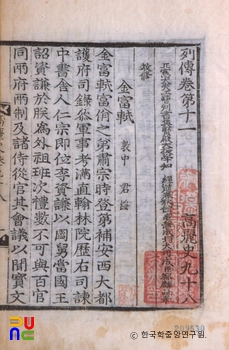 列傳卷第十一 高麗史九十八
正憲大夫工曹判書集賢殿大提學知 經筵春秋館事兼成均大司成
敎修
金富軾 敦中 君綏
金富軾富佾之弟肅宗時登第補安西大都
護府司錄叅軍事考滿直翰林院歷右司諫
中書舍人仁宗即位李資謙以國舅當國王
詔資謙於朕爲外祖班次禮數不可與百官
同兩府兩制及諸侍從官其會議以聞寶文
© 한국학중앙연구원